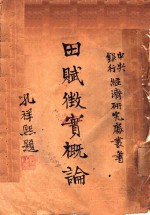 中央
銀行經濟研究處叢書
田賦徵實概論
孔祥熙題